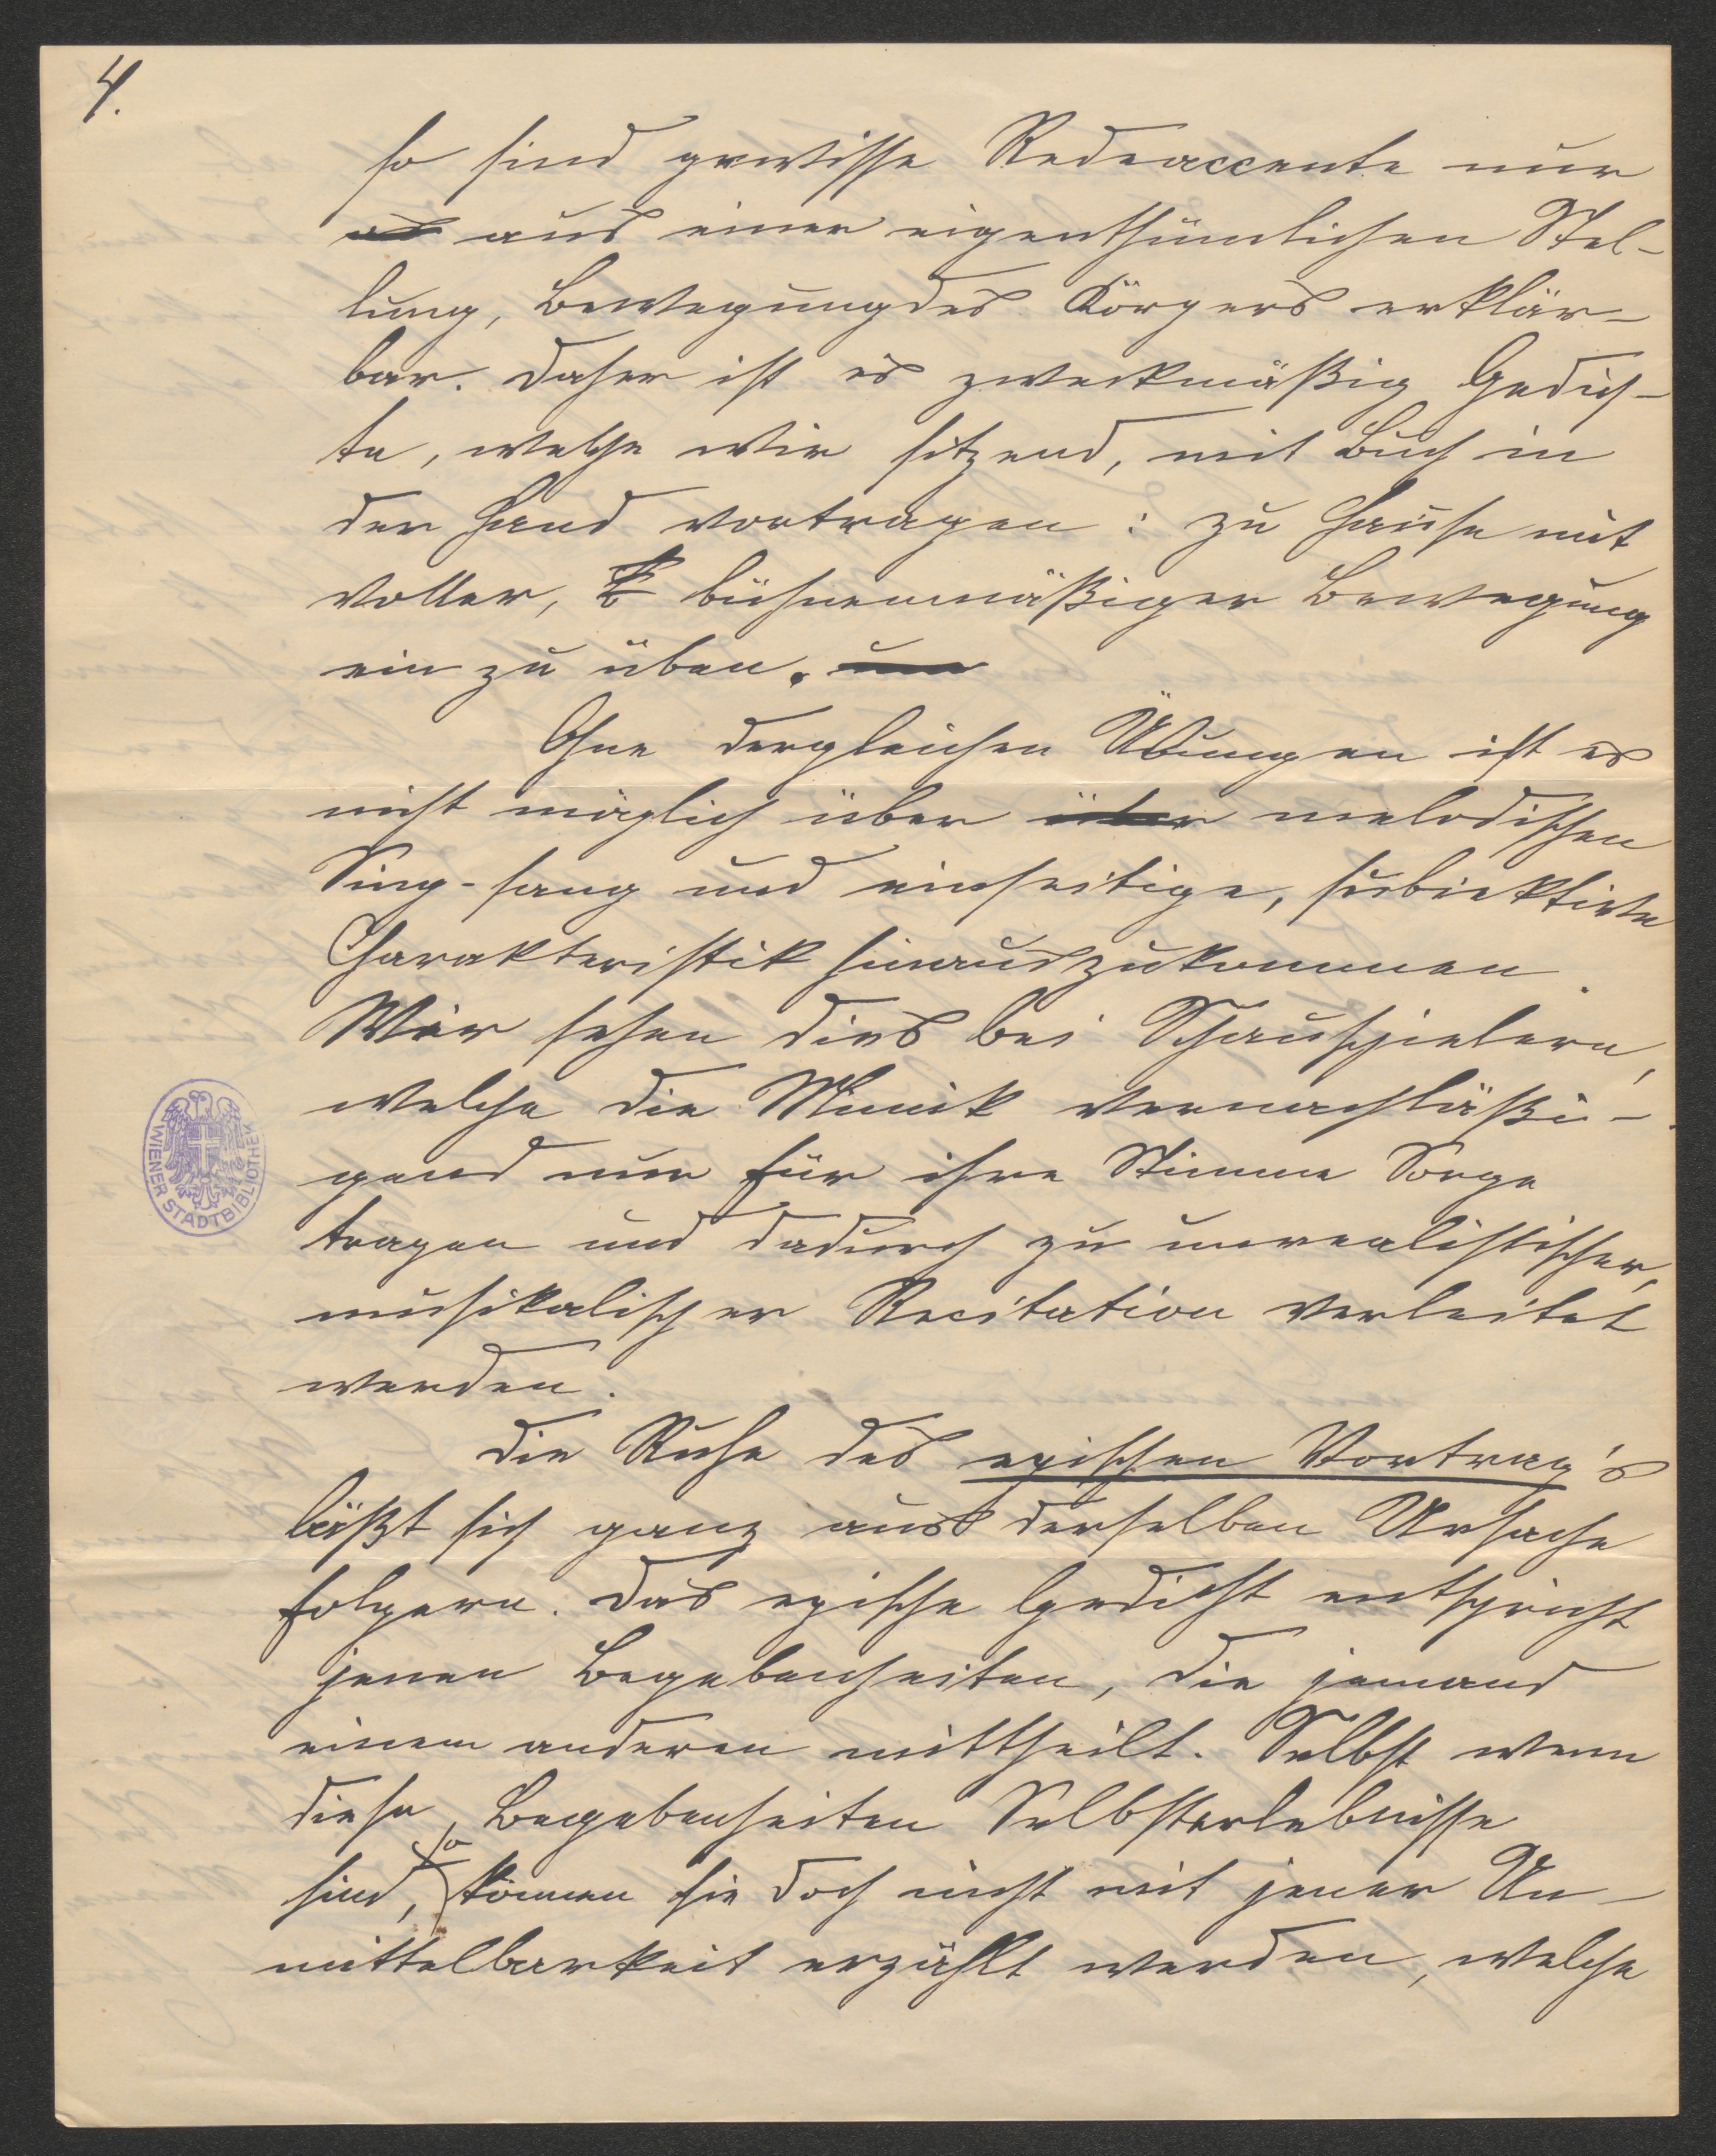 4.
so sind gewisse Redeaccente nur
aus einer eigenthümlichen Stel-
lung, Bewegung des Körpers erklär-
bar. Daher ist es zweckmäßig Gedich-
te, welche wir sitzend, mit Buch in
der Hand vortragen: zu Hause mit
voller, bühnenmäßiger Bewegung
ein zu üben.
Ohne dergleichen Übungen ist es
nicht möglich über über melodischen
Sing-sang und einseitige, subjektive
Charakteristik hinauszukommen.
Wir sehen dies bei Schauspielern,
welche die Mimik vernachläßi-
gend nur für ihre Stimme Sorge
tragen und dadurch zu unrealistischer,
musikalischer Recitation verleitet
werden.
Die Ruhe des epischen Vortrag's
läßt sich ganz aus derselben Ursache
folgern. Das epische Gedicht entspricht
jenen Begebenheiten, die jemand
einem anderen mittheilt. Selbst wenn
diese Begebenheiten Selbsterlebnisse
sind, so können sie doch nicht mit jener Un-
mittelbarkeit erzählt werden, welche
WIENER STADTBIBLIOTHEK